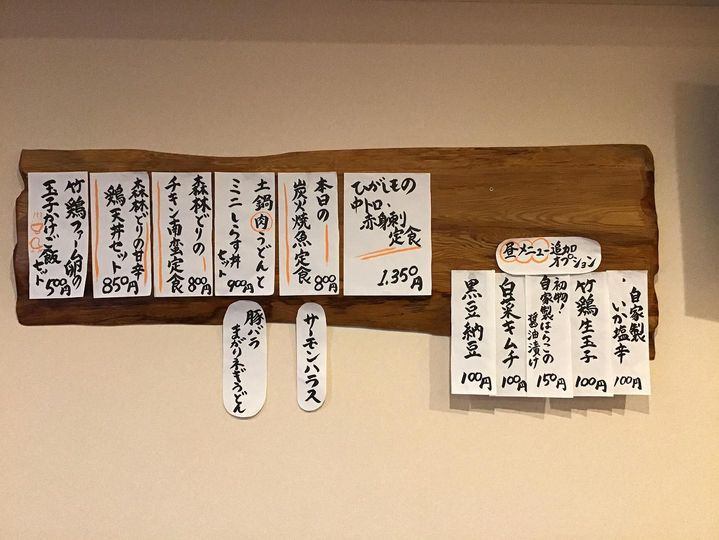 ひがしもの
中トロ・
赤身刺
定食
1,350円
本日の
炭火焼魚定食
800円
サーモンハラス
土鍋肉うどんと
ミニしらす丼
セット
900円
豚バラ
まがりネギうどん
森林どりの
チキン南蛮定食
800円
森林どりの甘辛
鶏天丼セット
850円
竹鶏ファーム卵の
玉子かけご飯
セット
500円
昼メニュー追加
オプション
自家製
いか塩辛
100円
竹鶏生玉子
100円
初物!
自家製はらこの
醤油漬け
150円
白菜キムチ
100円
黒豆納豆
100円